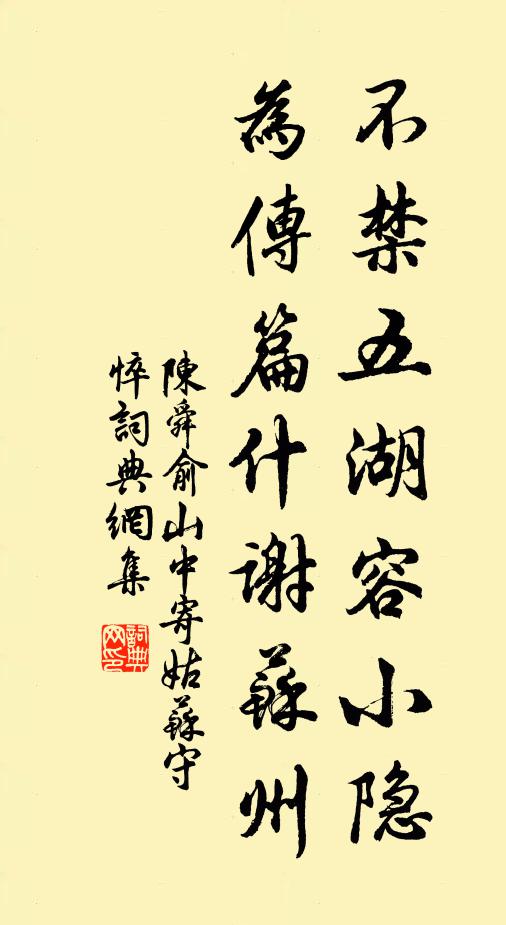 不禁五湖容小隐
為傳篇什謝蘇州
陳舜俞山中寄姑蘇守
悴詞典網集
詞典
网印